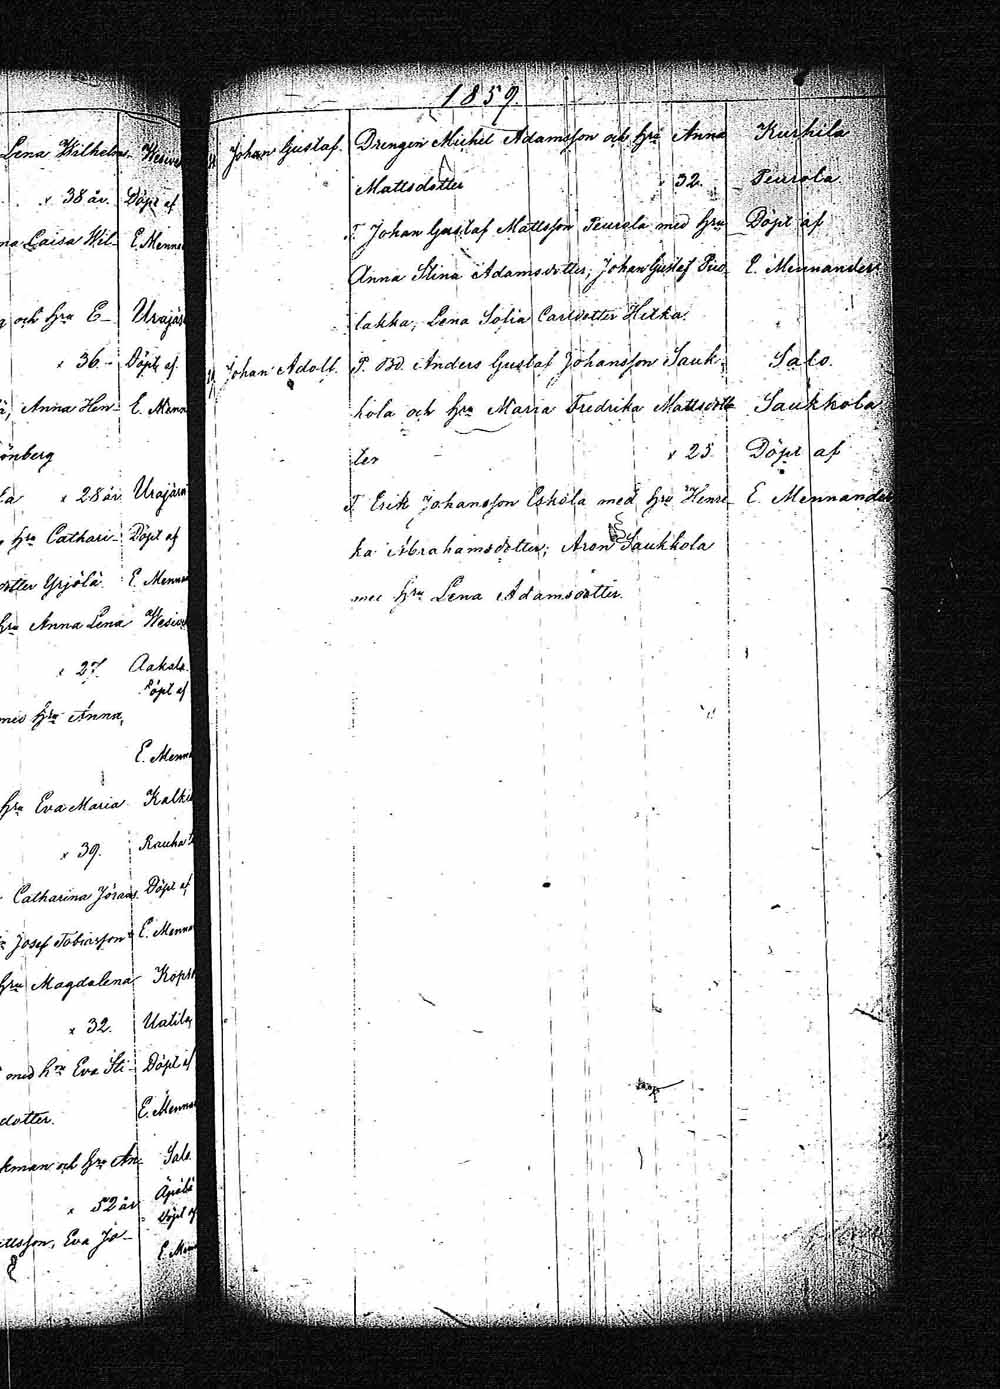 Lena Wilhelm-
x 38 år. Döpt af
Laisa Wil- E. Menn
och hru E- Urajär
x 36. Döpt af
Anna Hen- E. Menn
önberg
x 28 år Urajär
hru Cathari- Döpt af
dotter Yrjölä E. Menn
hru Anna Lena Wesiv
x 27. Aakala
Döpt af
med hru Anna,
E. Menn
hru Eva Maria Kalki
x 39. Rauha
Catharina Jörans Döpt af
Josef Tobiasson E. Menn
hru Magdalena Kops
x 32. Uutila
med hru Eva Sti- Döpt af
dotter. E. Menn
kman och hru An- Salo
x 52 år
Döpt af
ttsson, Eva Jo- E. Men
1859
Johan Gustaf. Drengen Michel Adamsson och hru Anna Kurhila
Mattsdotter x 32. Peurola
T. Johan Gustaf Mattsson Peurola med hru Döpt af
Anna Stina Adamsdotter; Johan Gustaf Pieo- E. Mennander.
lakka, Lena Sofia Carlsdotter Hitka.
Johan Adolf. P. Bd. Anders Gustaf Johansson Sauk- Salo.
kola och hru Maria Fredrika Mattsdot- Saukkola
ter x 25 Döpt af
T. Erik Johansson Eskola med hru Henri- E. Mennander
ka Abrahamsdotter; Aron Saukkola
med hru Lena Adamsdotter.